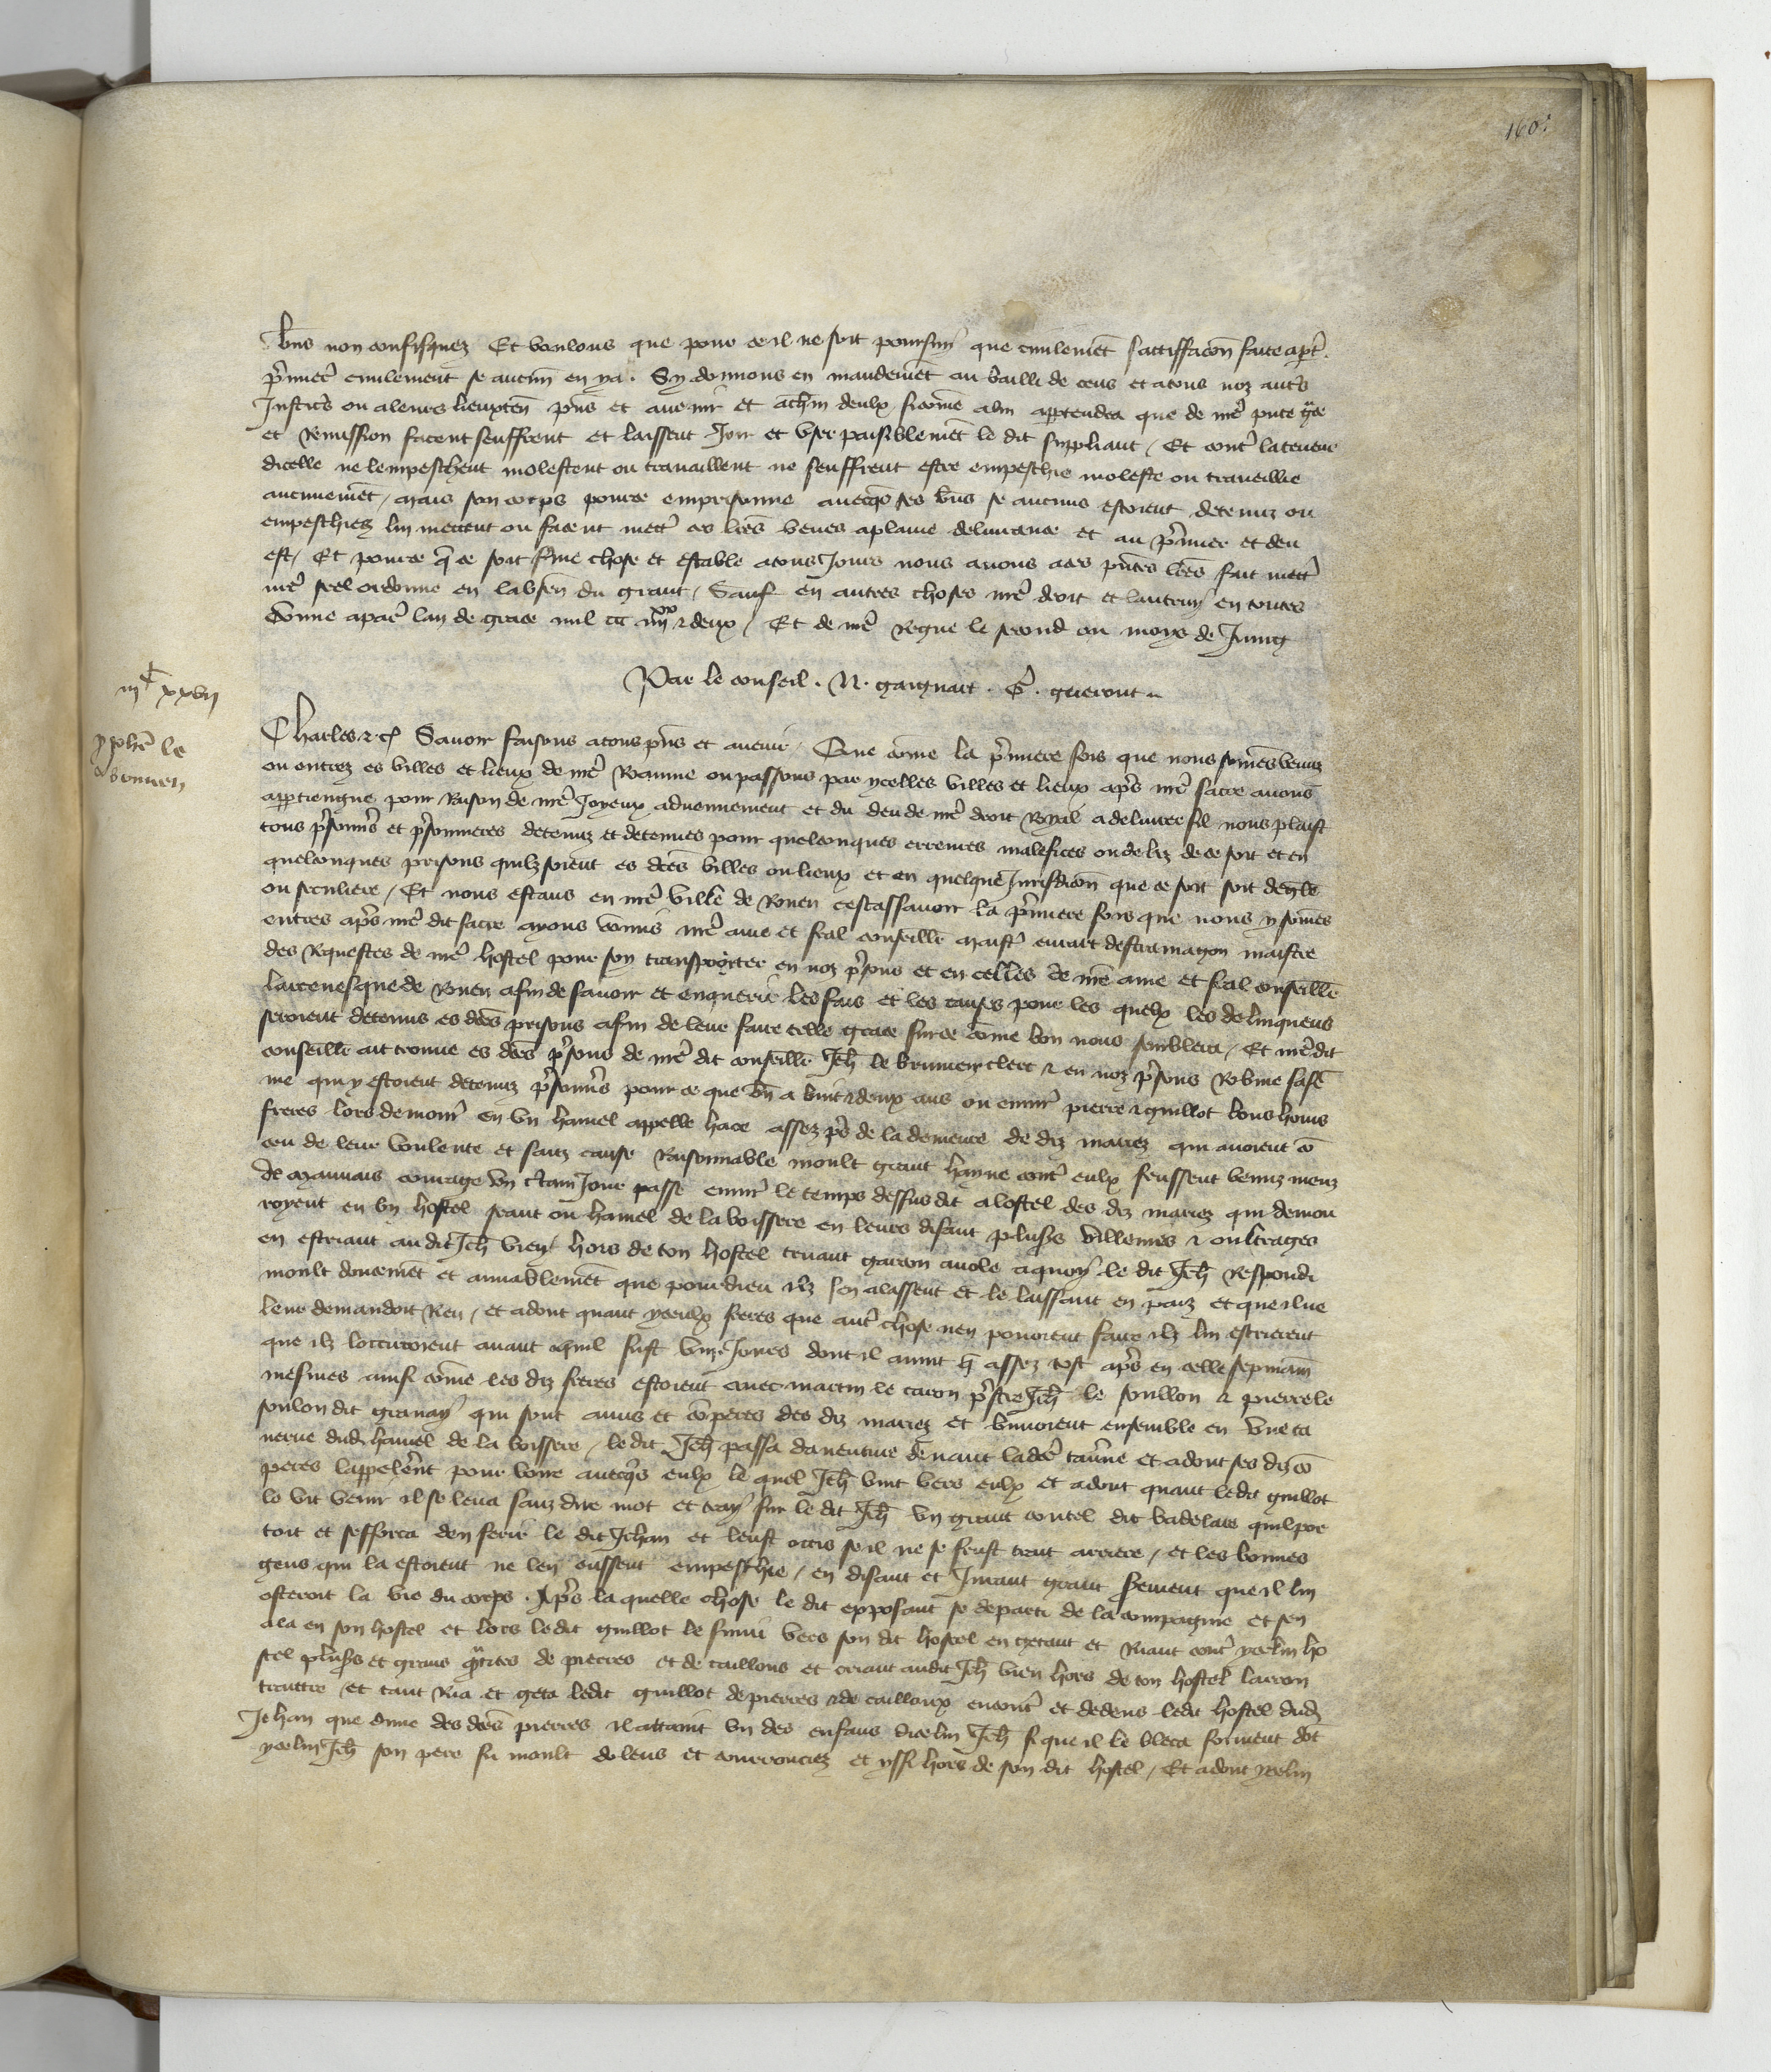 160
bn̄s non confisquez Et voulons que pour ce il ne soit poursuy que civilemēt sattiffacōn faite a pt̄
p̄mier civilement se aucun en y a. Sy donnons en mandemēt au bailli de et a tous noz autr̄s
Justic̄s ou a leurs lieuxten̄ pn̄s et avenir et a ch̄m deulx sicōme a lui appartendra que de nr̄e pn̄te grace
et Remission facent seuffrent et laissent Joir et user paisiblemēt le dit suppliant / Et cont̄ la teneur
dicelle ne lempeschent molestent ou travaillent ne seuffrent estre empeschie moleste ou traveillie
aucunemēt / mais son corps pour ce emprisonne avecq̄s ses bn̄s se aucuns estoient detenuz ou
empeschiez lui mettent ou facent mett̄ ces lr̄es veues a plaine delivrance et au p̄mier et deu
est / Et pour ce q̄ ce soit f̄me chose et estable a tous Jours nous avons a ces pn̄tes lr̄es fait mett̄
nr̄e seel ordonne en labsen̄ du grant / Sauf en autres choses nr̄e droit et lautruy en toutes
Donne a par̄ lan de grace mil ccc iiii xx & deux / Et de nr̄e Regne le second ou moys de Juing
Par le conseil . N. gaignart . G̃ . gueront
iij C xxvij
Charles &c̄ Savoir faisons a tous pn̄s et avenir / Que cōme la p̄miere fois que nous sōmes venuz
Jeh̄ le
brumen
ou entrez es villes et lieux de nr̄e Royaume ou passons par ycelles villes et lieux ap̄s nr̄e sacre avons
appartiengne pour Raison de nr̄e Joyeux advenement et du deu de nr̄e droit Royal a delivrer sil nous plaist
tous p̄sonn̄s et p̄sonnieres detenuz et detenues pour quelconques crermes malefices ou deliz de ce soit et en
quelconques prisons quilz soient es d̄ces villes ou lieux et en quelque Jurisdicōn que ce soit soit deglē
ou seculiere / Et nous estans en nr̄e ville de Rouen cestassavoir la p̄miere fois que nous y sōmes
entres ap̄s nr̄e dit sacre ayons cōmis nr̄e ame et feal conseillē maist̄ maistre
des Requestes de nr̄e hostel pour soy transporter en noz p̄sons et en celles de nr̄e ame et feal conseillē
larcevesque de Rouen afin de savoir et enquerir les fais et les causes pour les quelx les delinquens
seroient detenus es d̄ces prisons afin de leur faire telle grace sur ce cōme bon nous semblera / Et nr̄e dit
conseillē ait trouve es d̄ces p̄sons de nr̄e dit conseillē Jeh̄ le brumen clerc & en noz p̄sons Robine safē
me qui y estoient detenuz p̄sonn̄s pour ce que dn̄ a vint & deux ans ou envir̄ pierre & guillot bons homs
freres lors demour̄ en un hamel appelle hace assez p̄s de la demeure de diz mariez qui avoient cō
ceu de leur voulente et sanz cause Raisonnable moult grant hayne cont̄ eulx feussent venuz meuz
de mauvais courage un c̄tain Jour passe envir̄ le temps dessus dit a lostel des diz mariez qui demou
royent en un hostel seant ou hamel de la boissiere en leurs disant plus̄s villenies & oultrages
en escriant au dit Jeh̄ vien hors de ton hostel truant garcon avole a quoy le dit Jeh̄ Respondi
moult doucemēt et aimablemēt que pour dieu ilz sen alassent et le laissant en paiz et que il ne
leur demandoit Rien / et adont quant yceulx freres que aut̄ chose nen povoient faire ilz lui escrierent
que ilz locciroient avant quil fust Jours dont il avint q̄ assez tost ap̄s en celle sepmain̄
mesmes ainsi cōme les diz freres estoient avec martin le caron p̄stre Jeh̄ le soullon & pierre le
soulon dit granay qui sont amis et cōperes des diz mariez et buvoient ensemble en une ta
verne dudit hamel de la boissiere / le dit Jeh̄ passa daventure devant lad̄ce tav̄ne et adont ses diz cō
peres lappelēnt pour boire avecq̄s eulx le quel Jeh̄ vint vers eulx et adont quant ledit guillot
lo vit venir il se leva sanz dire mot et tray sur le dit Jeh̄ un grant coutel dit badelare quil por
toit et sefforca den ferir le dit Jehan et leust occis se il ne se feust trait arriere / et les bonnes
gens qui la estoient ne len eussent empeschie / en disant et Jurant grant s̄ement que il lui
osteroit la vie du corps . Ap̄s la quelle chose le dit exposant se departi de la compaignie et sen
ala en son hostel et lors ledit guillot le suivi vers son dit hostel en getant et Riant cont̄ ycelui ho
stel plus̄s et grans q̄ntites de pierres et de caillous et criant audit Jeh̄ vien hors de ton hostel larron
truttre et tant Rua et geta ledit guillot de pierres & de cailloux encont̄ et dedens ledit hostel dud̄
Jehan que dune des d̄ces pierres il attaint un des enfans dicelui Jeh̄ si que il le bleca forment dōt
ycelui Jeh̄ son pere fu moult dolens et courrouciez et yssi hors de son dit hostel / Et adont ycelui